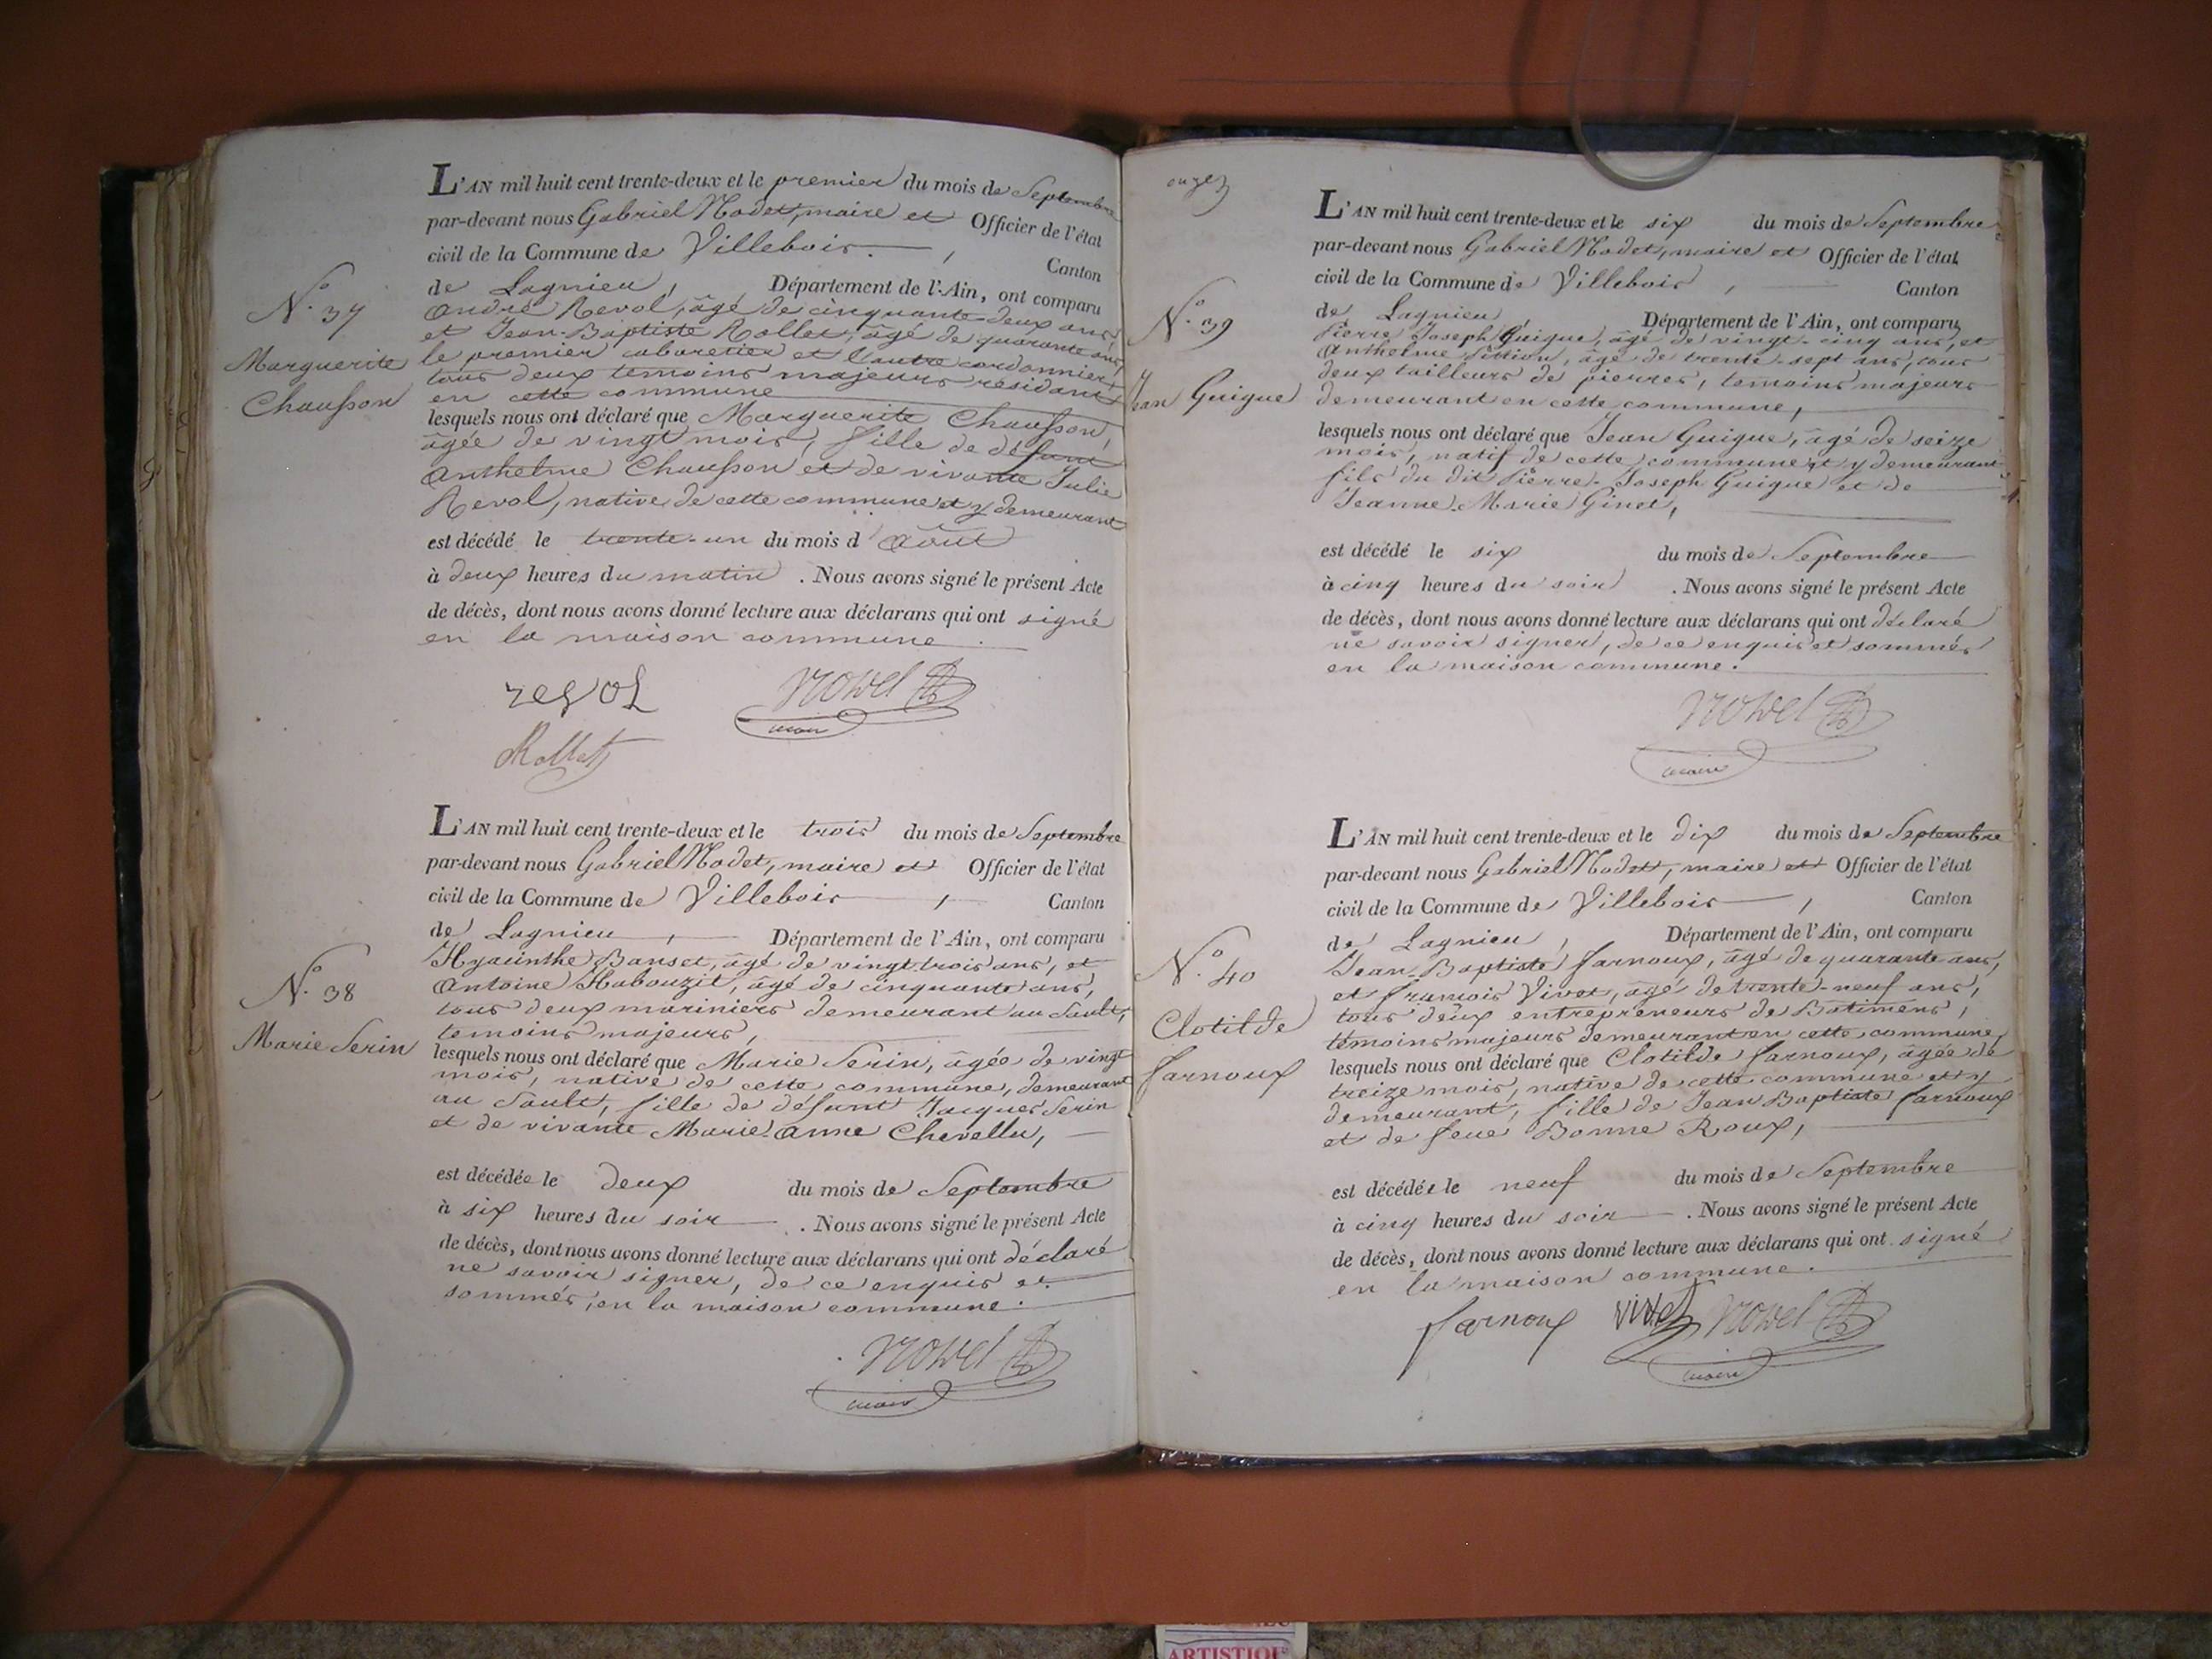 L'AN mil huit cent trente-deux et le premier du mois de Septembre
par-devant nous Gabriel Nodet, maire et Officier de l'état
civil de la Commune de Villebois, Canton
de Lagnieu, Département de l'Ain, ont comparu
André Revol, âgé de cinquante-deux ans,
et Jean-Baptiste Rollet, âgé de quarante ans,
le premier cabaretier et l'autre cordonnier,
tous deux témoins majeurs résidant
en cette commune
N.o 37
Marguerite
Chausson
lesquels nous ont déclaré que Marguerite Chausson,
âgée de vingt mois, fille de défunt
Anthelme Chausson et de vivante Julie
Revol, native de cette commune et y demeurant
est décédé le trente-un du mois d'Août
à deux heures du matin. Nous avons signé le présent Acte
de décès, dont nous avons donné lecture aux déclarans qui ont signé
en la maison commune.
revol
Rollet
maire
L'AN mil huit cent trente-deux et le trois du mois de Septembre
par-devant nous Gabriel Nodet, maire et Officier de l'état
civil de la Commune de Villebois, Canton
de Lagnieu, Département de l'Ain, ont comparu
Hyacinthe Banset, âgé de vingt trois ans, et
Antoine Habouzit, âgé de cinquante ans,
tous deux mariniers demeurant au Sault,
temoins majeurs,
N.o 38
Marie Serin
lesquels nous ont déclaré que Marie Serin, âgée de vingt
mois, native de cette commune, demeurant
au Sault, fille de défunt Jacques Serin
et de vivante Marie-Anne Chevellu,
est décédée le deux du mois de Septembre
à six heures du soir. Nous avons signé le présent Acte
de décès, dont nous avons donné lecture aux déclarans qui ont déclaré
ne savoir signer, de ce enquis et
sommés, en la maison commune.
maire
L'AN mil huit cent trente-deux et le six du mois de Septembre
par-devant nous Gabriel Nodet, maire et Officier de l'état
civil de la Commune de Villebois, Canton
de Lagnieu Département de l'Ain, ont comparu
Pierre Joseph Guigue, âgé de vingt-cinq ans, et
Anthelme Fittion, âgé de trente-sept ans, tous
deux tailleurs de pierres, temoins majeurs
demeurant en cette commune,
N.o 39
Jean Guigue
lesquels nous ont déclaré que Jean Guigue, âgé de seize
mois, natif de cette commune et y demeurant
fils du dit Pierre-Joseph Guigue et de
Jeanne-Marie Ginet,
est décédé le six du mois de Septembre
à cinq heures du soir. Nous avons signé le présent Acte
de décès, dont nous avons donné lecture aux déclarans qui ont déclaré
ne savoir signer, de ce enquis et sommés
en la maison commune.
maire
L'AN mil huit cent trente-deux et le dix du mois de Septembre
par-devant nous Gabriel Nodet, maire et Officier de l'état
civil de la Commune de Villebois, Canton
de Lagnieu, Département de l'Ain, ont comparu
Jean-Baptiste Jarnoux, âgé de quarante ans,
et François Vivet, âgé de trente-neuf ans,
tous deux entrepreneurs de Bâtimens,
témoins majeurs demeurant en cette commune,
N.o 40
Clotilde
Jarnoux
lesquels nous ont déclaré que Clotilde Jarnoux, âgée de
treize mois, native de cette commune et y
demeurant, fille de Jean Baptiste Jarnoux
et de feue Bonne Roux,
est décédée le neuf du mois de Septembre
à cinq heures du soir. Nous avons signé le présent Acte
de décès, dont nous avons donné lecture aux déclarans qui ont signé
en la maison commune.
Jarnoux vivet
maire
ARTISTIQUE